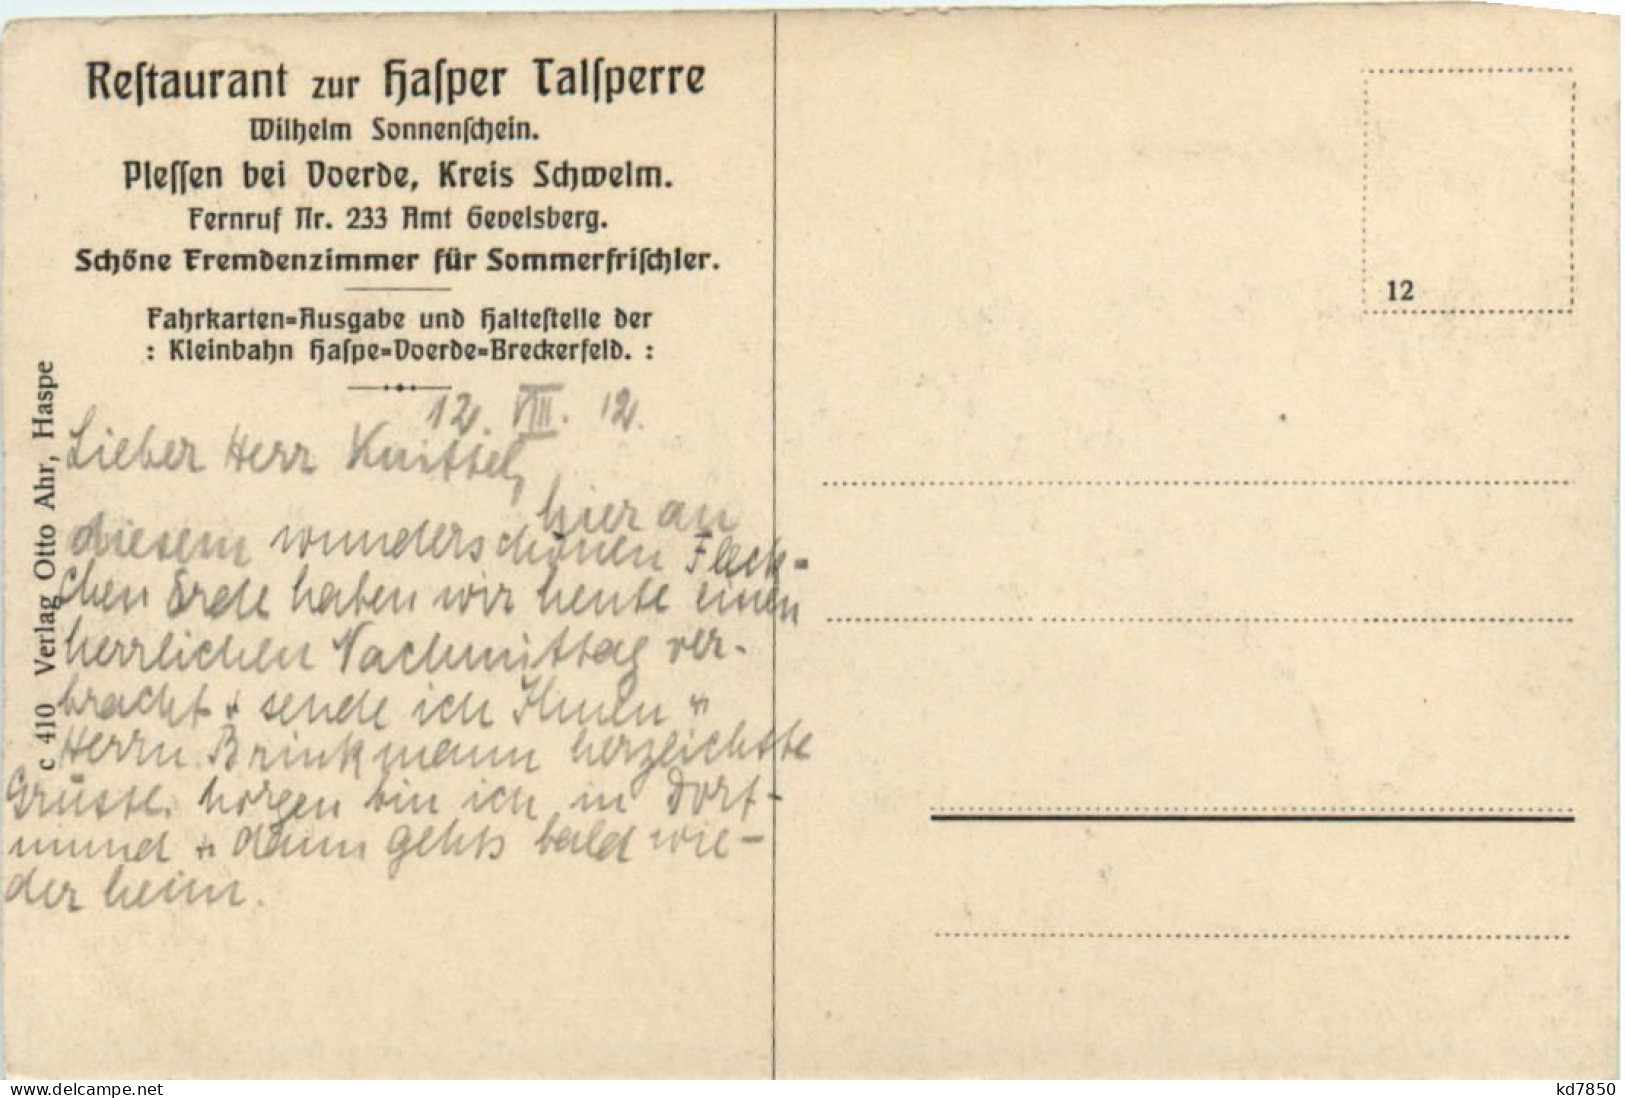 Reſtaurant zur Haſper Talſperre
Wilhelm Sonnenſchein.
Pleſſen bei Voerde, Kreis Schwelm.
Fernruf Nr. 233 Amt Gevelsberg.
Schöne Fremdenzimmer für Sommerfriſchler.
Fahrkarten=Ausgabe und Halteſtelle der
: Kleinbahn Haſpe=Voerde=Breckerfeld. :
c 410 Verlag Otto Ahr, Haspe
12. VIII. 12.
Lieber Herr Knittel,
hier an
diesem wunderschönen Fleck=
chen Erde haben wir heute einen
herrlichen Nachmittag ver-
bracht + sende ich Ihnen +
Herrn Brinkmann herzlichste
Grüsse. Morgen bin ich in Dort-
mund + dann gehts bald wie-
der heim.
12
www.delcampe.net
kd7850